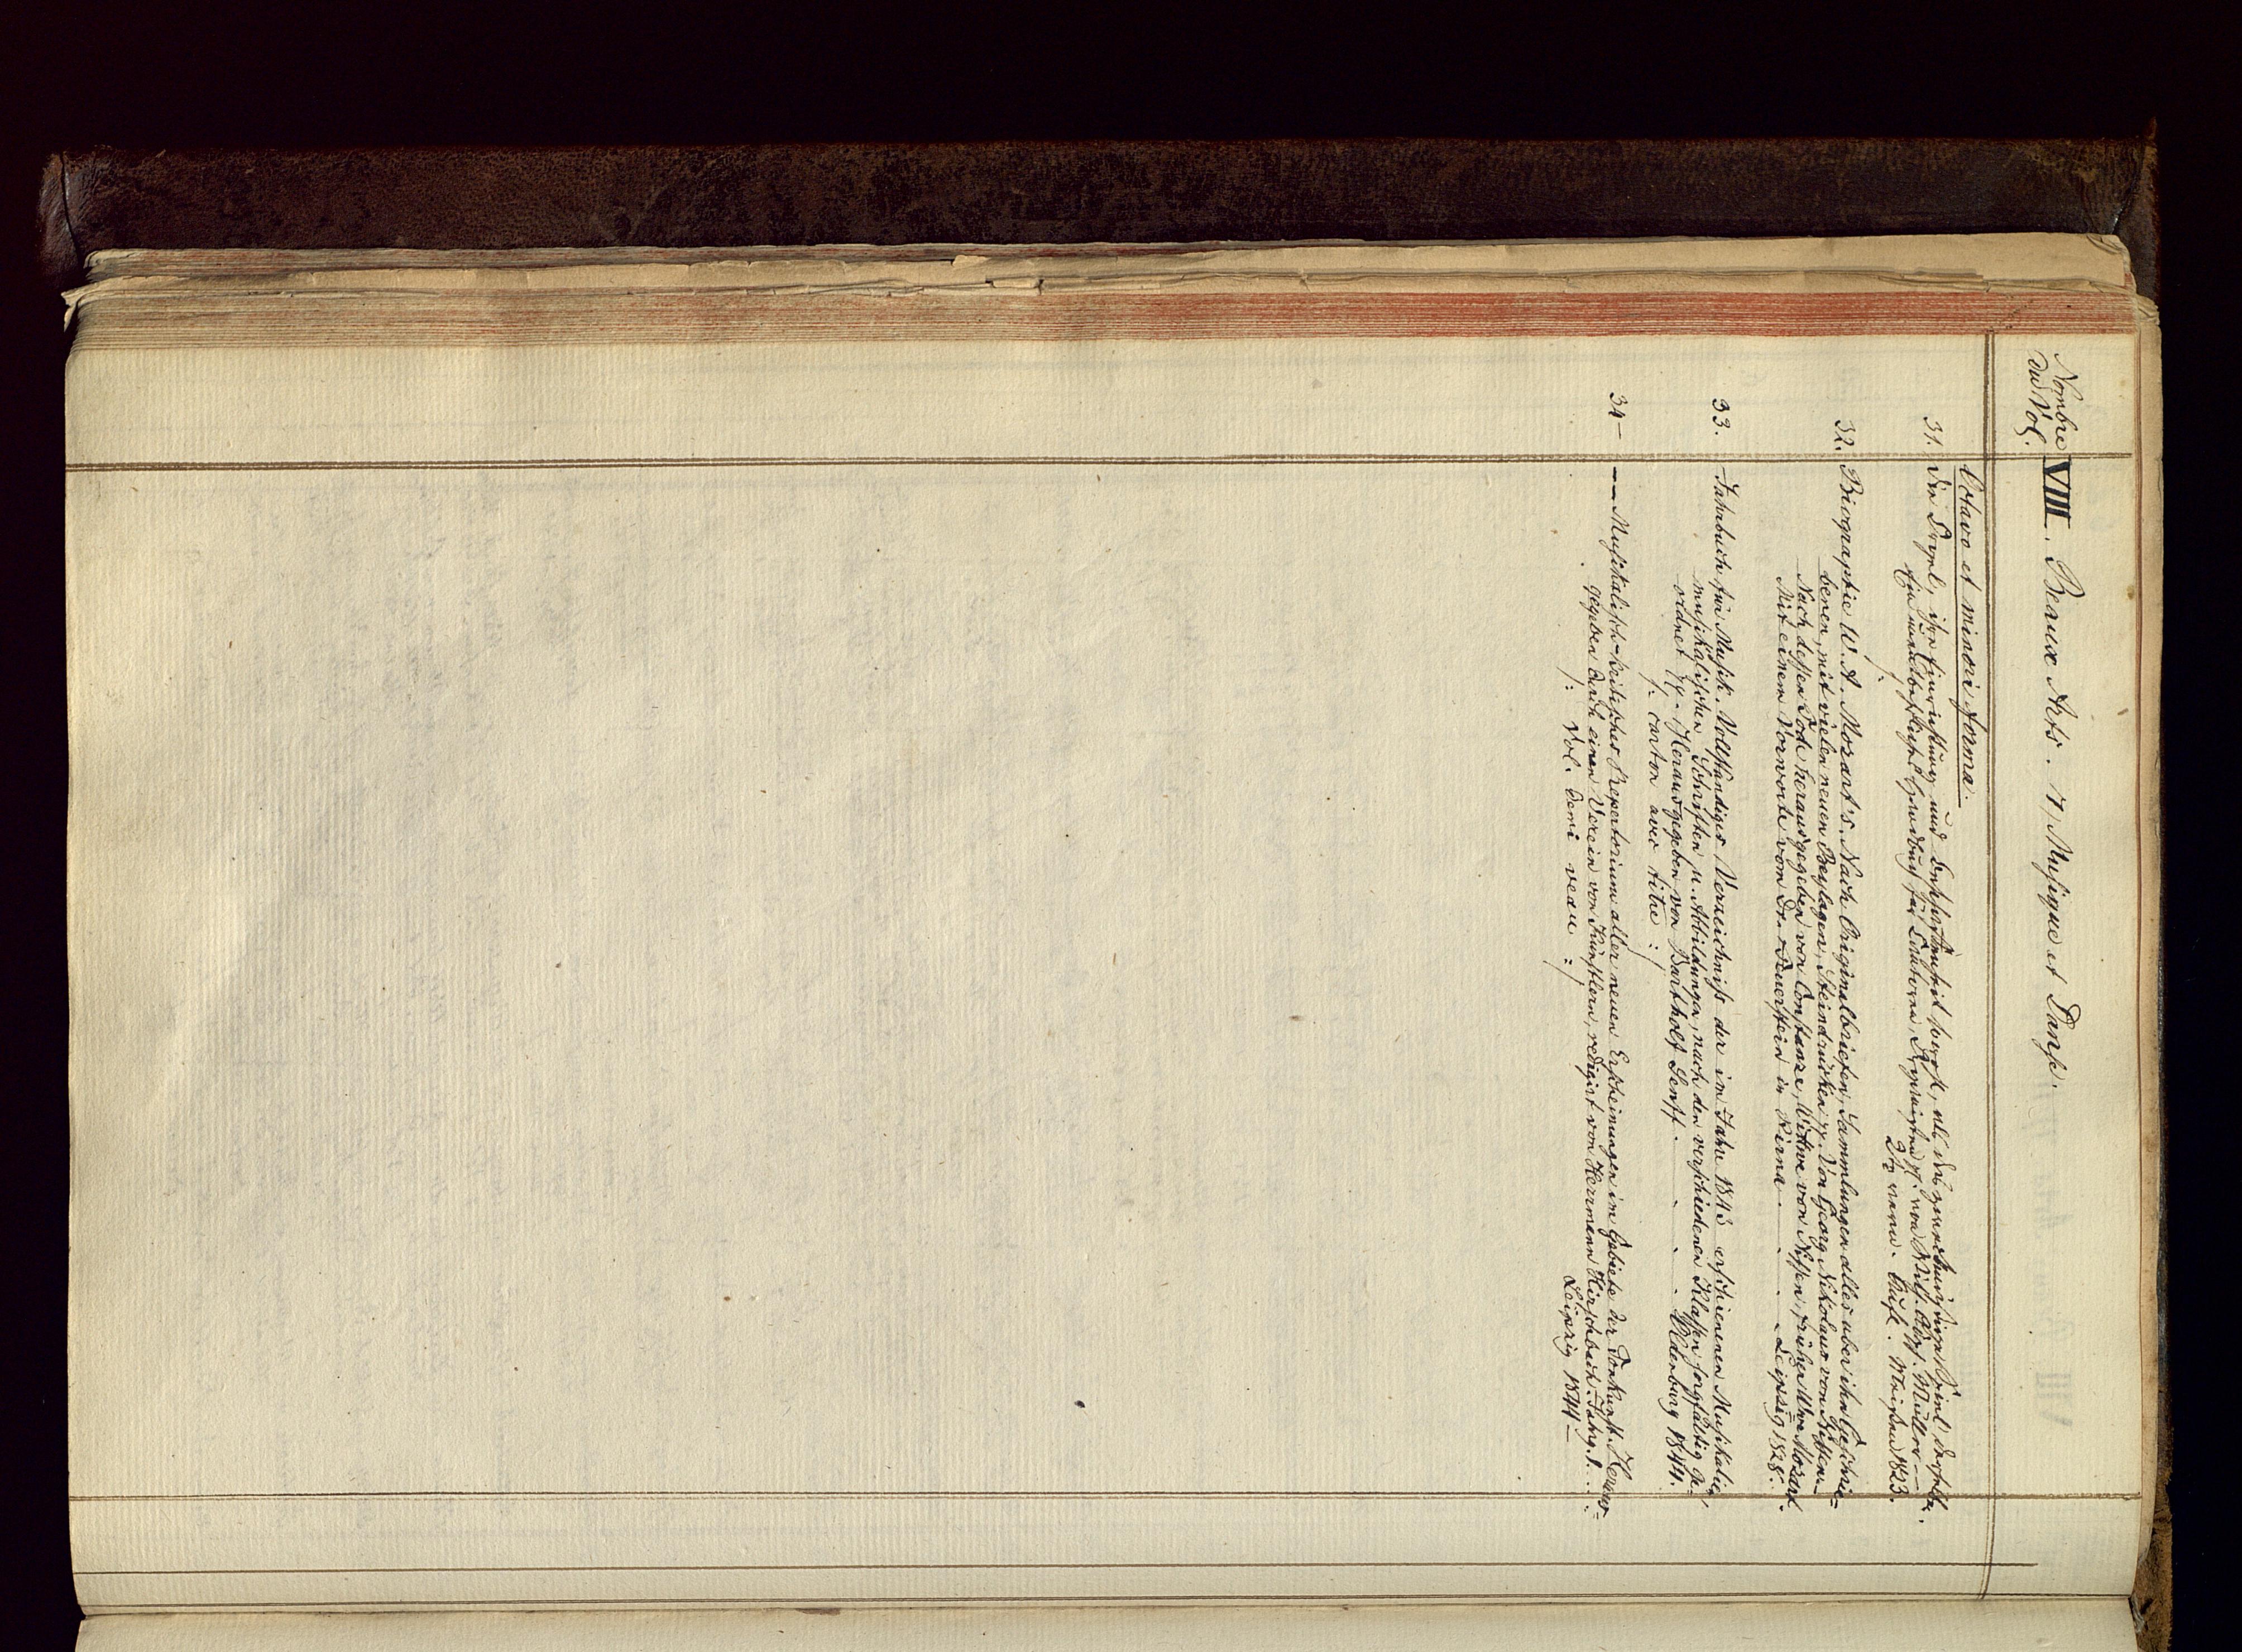 Nombre
du Vol.
VIII. Beaux Arts. 7, Musique et Danse.
Octavo et minori forma.
31. Die Orgel, ihre Einrichtung und Beschaffenheit sowohl, als das zweckmäßige Spiel derselben.
Ein unentbehrliches Handbuch für Cantoren, Organisten pp. von Wilh. Adolf. Müller —
2te verm. Aufl. Meißen 1823.
32. Biographie W. A. Mozart's. Nach Originalbriefen, Sammlungen alles über ihn Geschrie=
benen, mit vielen neuen Beylagen, Steindrücken pp. Von Georg Nikolaus von Nissen.
Nach dessen Tode herausgegeben von Constanze, Wittwe von Nissen, früher Wwe Mozart.
Mit einem Vorworte vom Dr. Feuerstein in Pirna. . . . Leipzig 1828.
33. Jahrbuch für Musik. Vollständiges Verzeichniss der im Jahre 1843 erschienenen Musikalien,
musikalischen Schriften u. Abbildungen, nach den verschiedenen Klassen sorgfältig ge=
ordnet pp. Herausgegeben von Bartholf Senff. . . . Altenburg 1844.
/: carton avec titre :/
34 — —— Musikalisch-kritisches Repertorium aller neuen Erscheinungen im Gebiete der Tonkunst. Heraus=
gegeben durch einen Verein von Künstlern, redigirt von Herrmann Hirschbach. Jahrg. I. . .
/: Vol. demi veau :/ Leipzig 1844 —